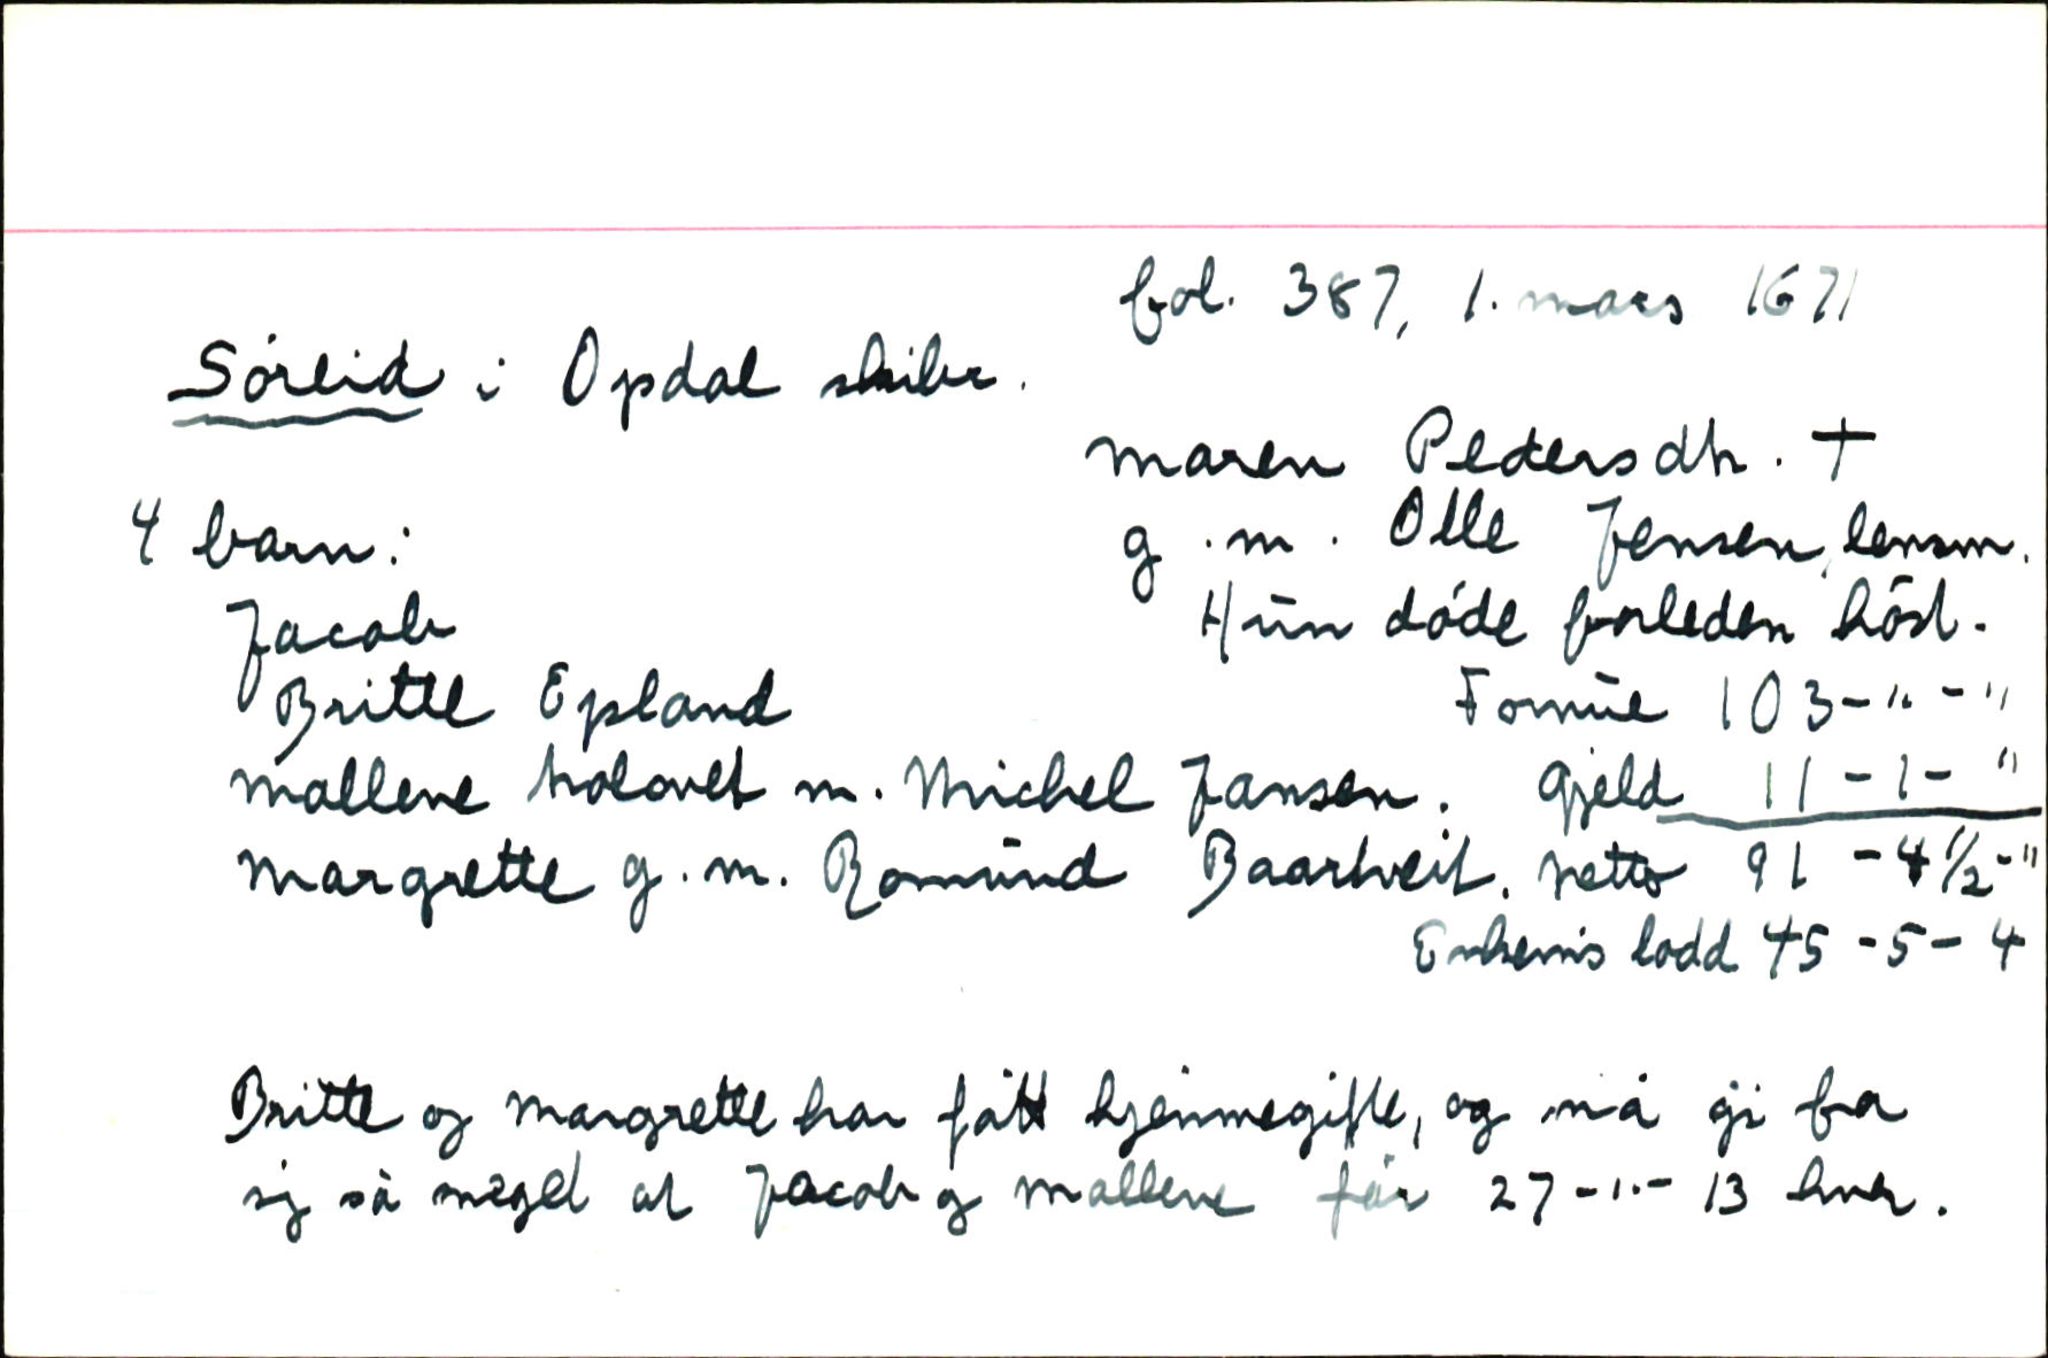 fol. 387, 1. mars 1671
Söreid i Opdal skibr.
Maren Pedersdtr. †
4 barn:
g.m. Olle Jensen, lensm.
Jacob
Hun döde forleden höst.
Britte Epland
Formue 103-"-"
Mallene trolovet m. Michel Jansen. Gjeld 11-1-"
Margrette g.m. Romund Baartveit. Netto 91-4½-"
Enkem's lodd 45-5-4
Britte og Margrette har fått hjemmegifte, og må gi fra
sig så meget at Jacob og Mallene får 27-"-13 hver.